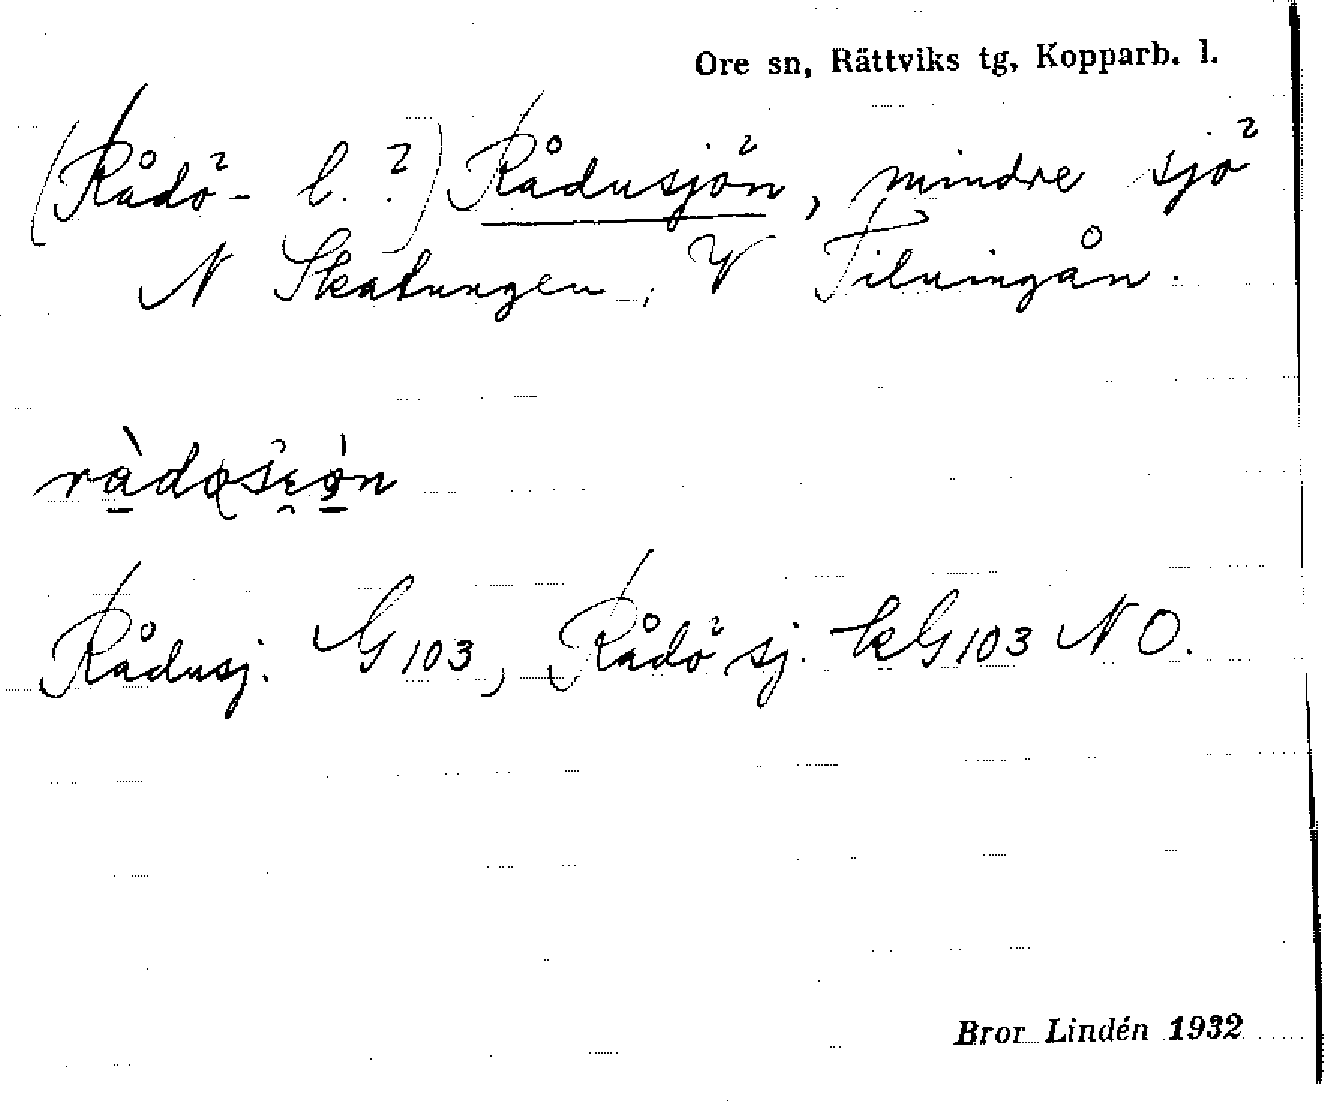 Ore sn, Rättviks tg, Kopparb. l.
(Rådö- l. ?) Rådusjön, mindre sjö
N Skattungen, V Filningån.
Rådusj. G 103, Rådö sj. kG 103 NO.
Bror Lindén 1932